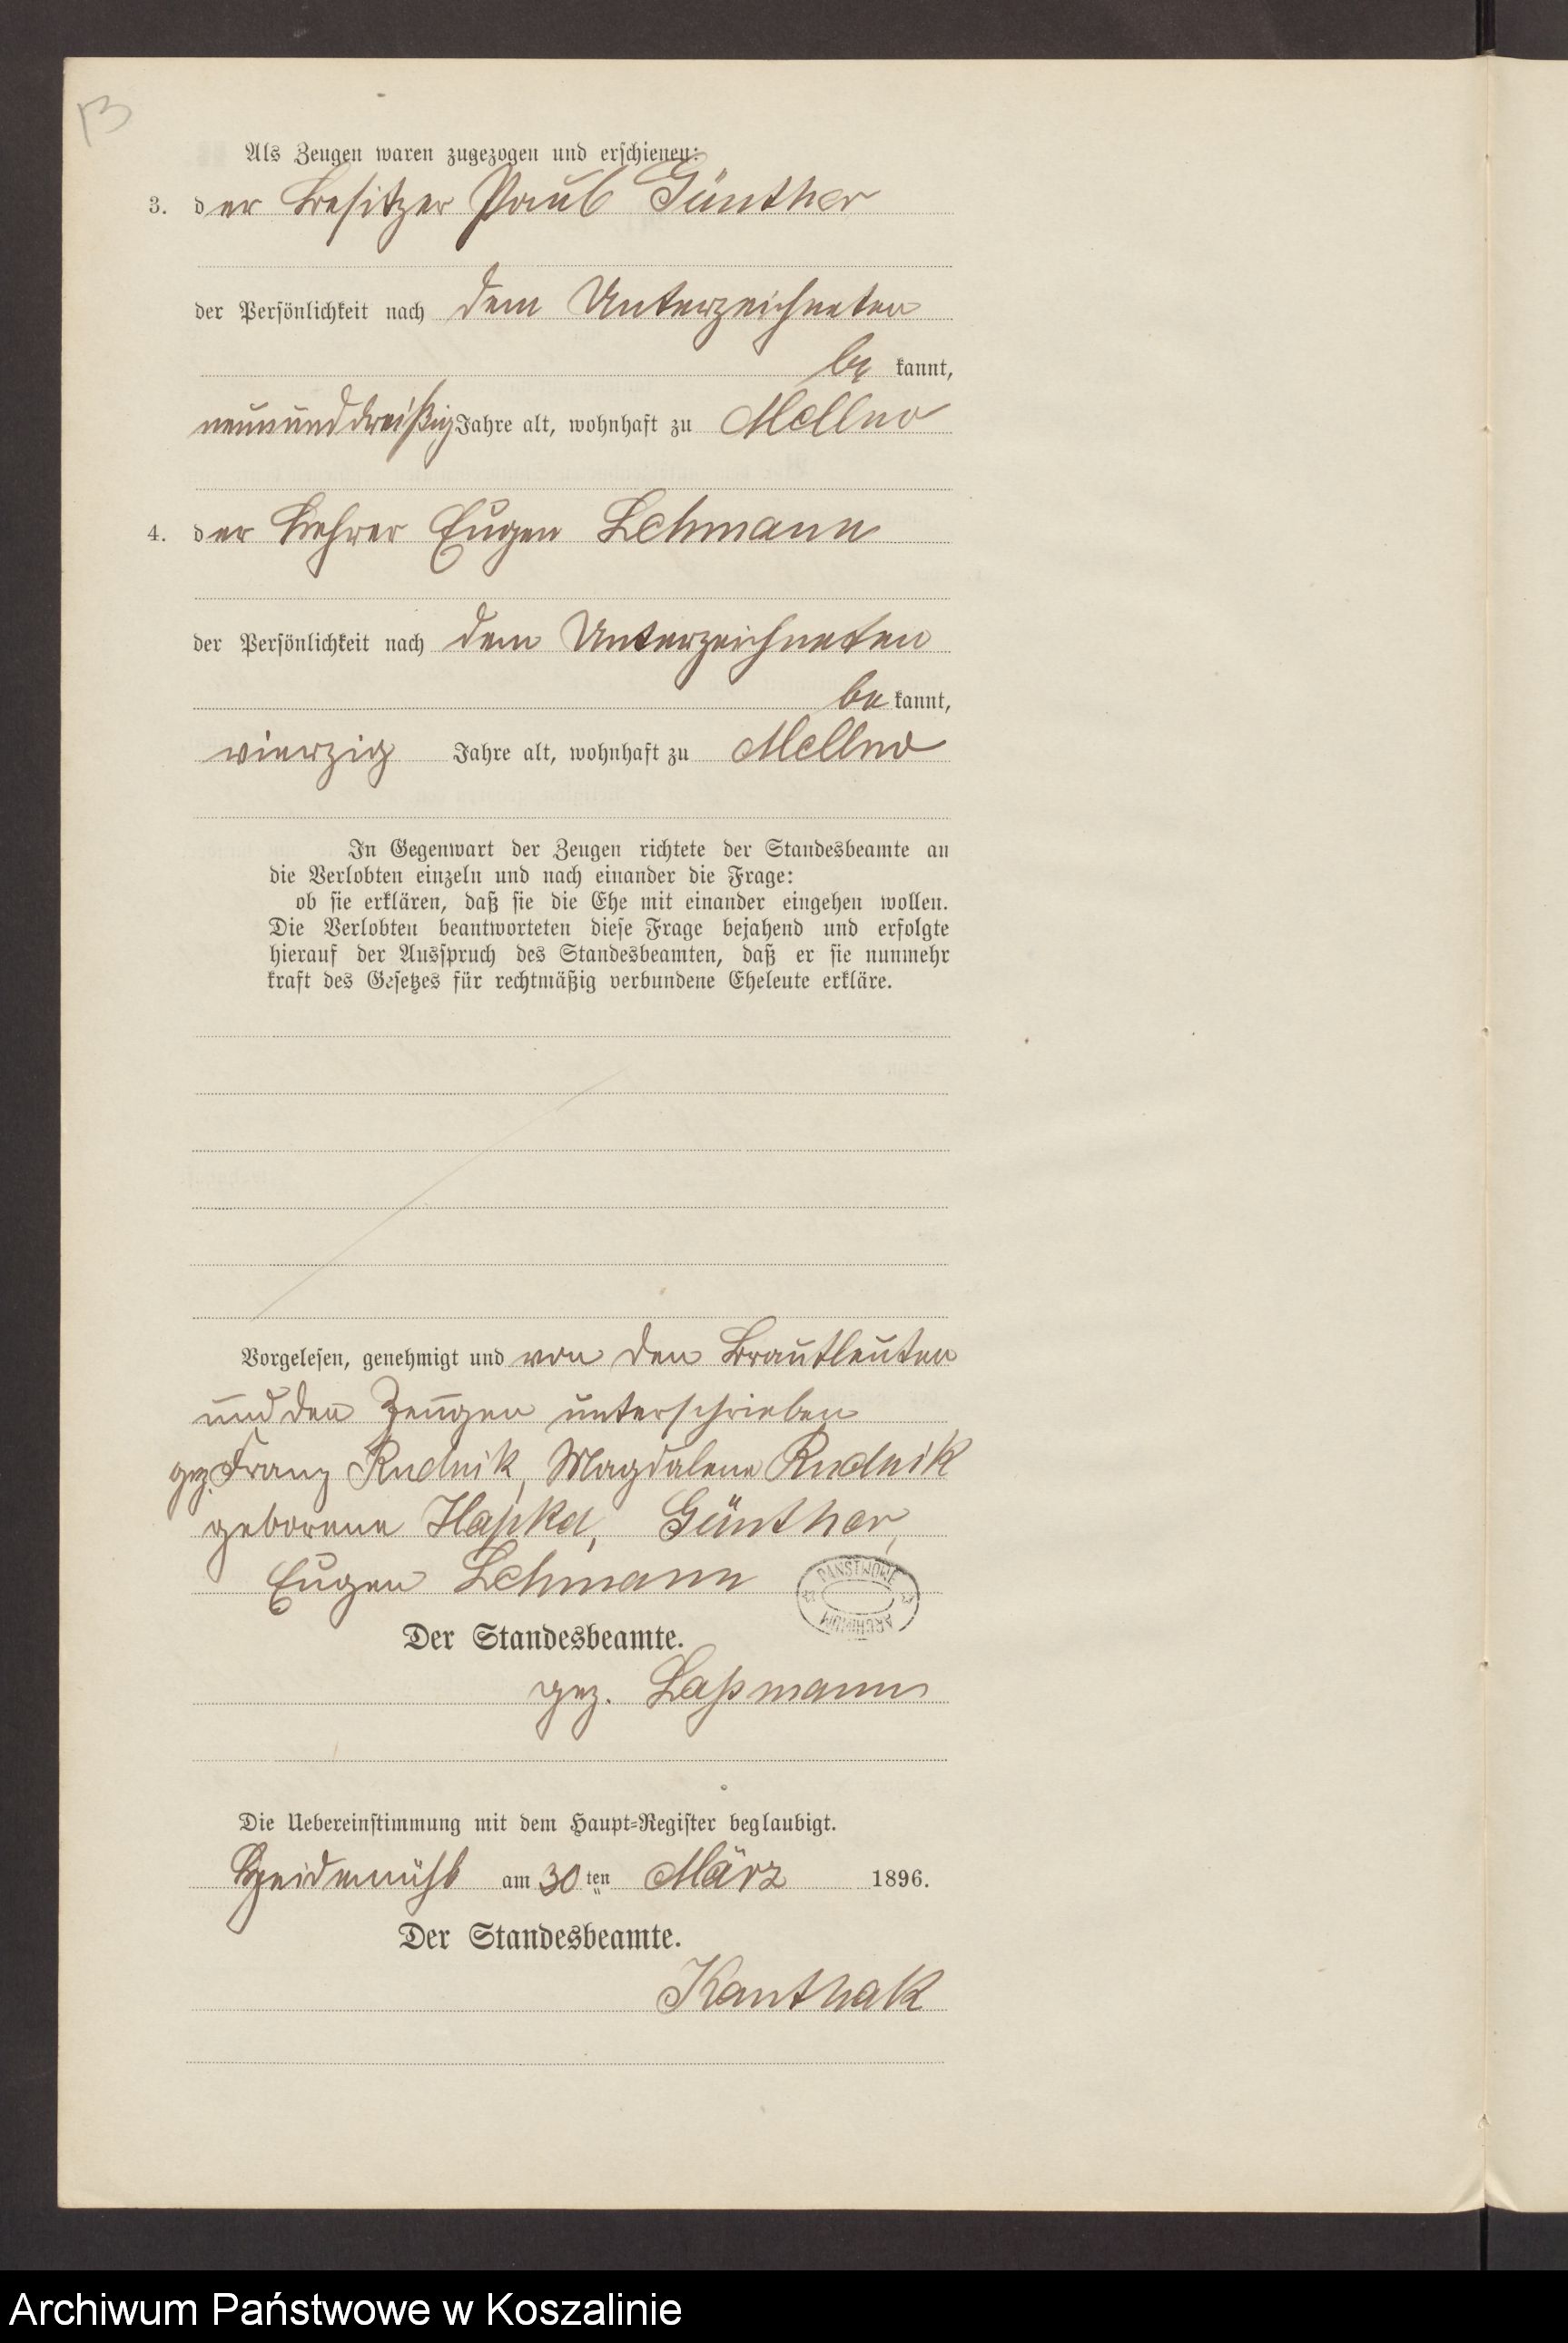 13
Als Zeugen waren zugezogen und erschienen:
3. der Besitzer Paul Günther
der Persönlichkeit nach dem Unterzeichneten
be kannt,
neununddreißig Jahre alt, wohnhaft zu Mellno
4. der Lehrer Eugen Lehmann
der Persönlichkeit nach dem Unterzeichneten
be kannt,
vierzig Jahre alt, wohnhaft zu Mellno
In Gegenwart der Zeugen richtete der Standesbeamte an
die Verlobten einzeln und nach einander die Frage:
ob sie erklären, daß sie die Ehe mit einander eingehen wollen.
Die Verlobten beantworteten diese Frage bejahend und erfolgte
hierauf der Ausspruch des Standesbeamten, daß er sie nunmehr
kraft des Gesetzes für rechtmäßig verbundene Eheleute erkläre.
Vorgelesen, genehmigt und von den Brautleuten
und den Zeugen unterschrieben
gez. Franz Rudnik, Magdalena Rudnik
geborene Hapka, Günther,
Eugen Lehmann
PAŃSTWOWE ARCHIWUM
Der Standesbeamte.
gez. Laßmann
Die Uebereinstimmung mit dem Haupt-Register beglaubigt.
am 30ten März 1896.
Der Standesbeamte.
Kanthak
Archiwum Państwowe w Koszalinie